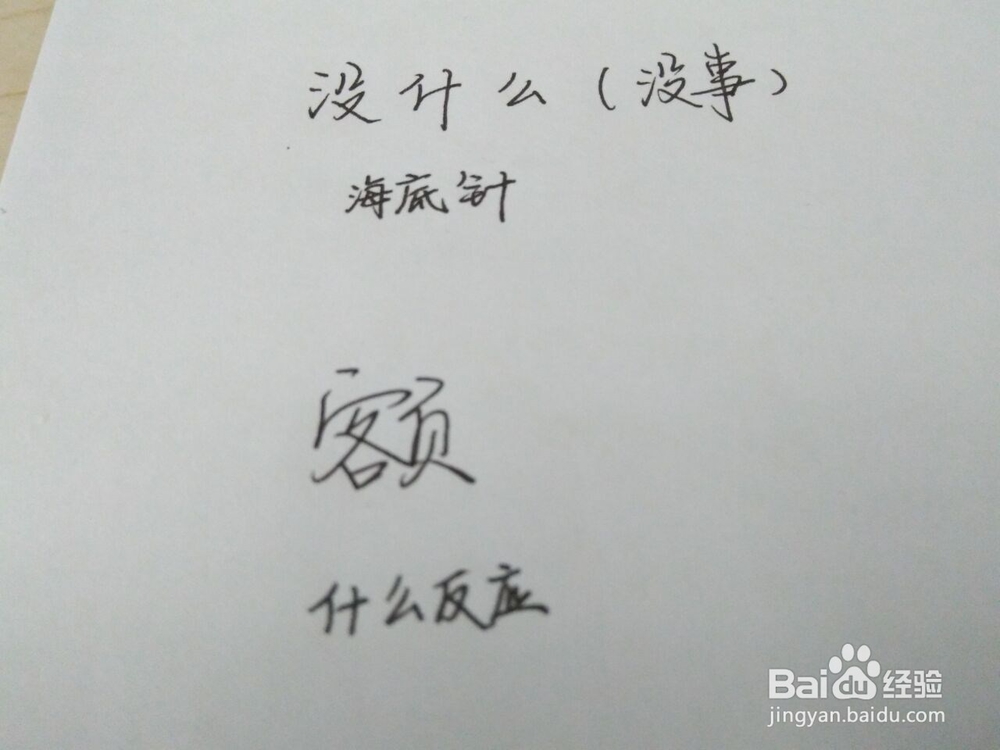 没什么(没事)
海底针
额
什么反应
Baidu经验
jingyan.baidu.com